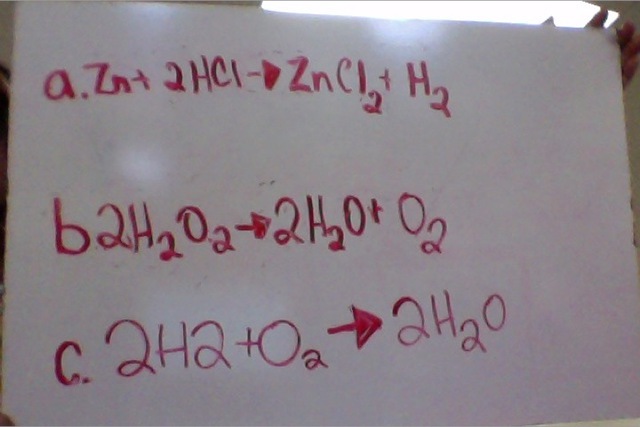 a. Zn + 2HCl → ZnCl₂ + H₂
b. 2H₂O₂ → 2H₂O + O₂
c. 2H2 + O₂ → 2H₂O